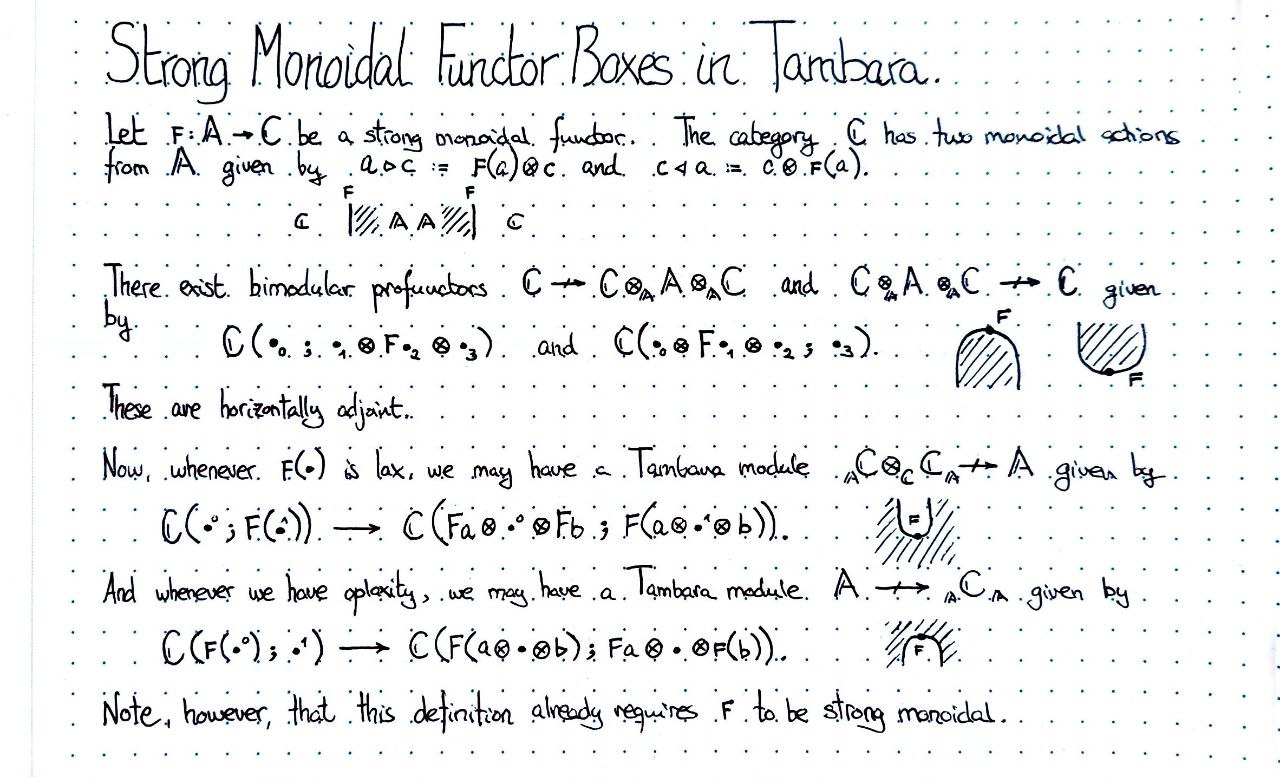 Strong Monoidal Functor Boxes in Tambara.
Let F: 𝔸 → ℂ be a strong monoidal functor. The category ℂ has two monoidal actions
from 𝔸 given by a ▷ c := F(a) ⊗ c and c ◁ a := c ⊗ F(a).
F F
ℂ 𝔸 𝔸 ℂ
There exist bimodular profunctors ℂ ⇸ ℂ ⊗_𝔸 𝔸 ⊗_𝔸 ℂ and ℂ ⊗_𝔸 𝔸 ⊗_𝔸 ℂ ⇸ ℂ given
by
ℂ(•₀ ; •₁ ⊗ F•₂ ⊗ •₃) and ℂ(•₀ ⊗ F•₁ ⊗ •₂ ; •₃). F F
These are horizontally adjoint.
Now, whenever F(•) is lax, we may have a Tambara module _𝔸ℂ ⊗_ℂ ℂ_𝔸 ⇸ 𝔸 given by
ℂ(•⁰ ; F(•¹)) → ℂ(Fa ⊗ •⁰ ⊗ Fb ; F(a ⊗ •¹ ⊗ b)). F
And whenever we have oplaxity, we may have a Tambara module 𝔸 ⇸ _𝔸ℂ_𝔸 given by
ℂ(F(•⁰) ; •¹) → ℂ(F(a ⊗ • ⊗ b) ; Fa ⊗ • ⊗ F(b)). F
Note, however, that this definition already requires F to be strong monoidal.